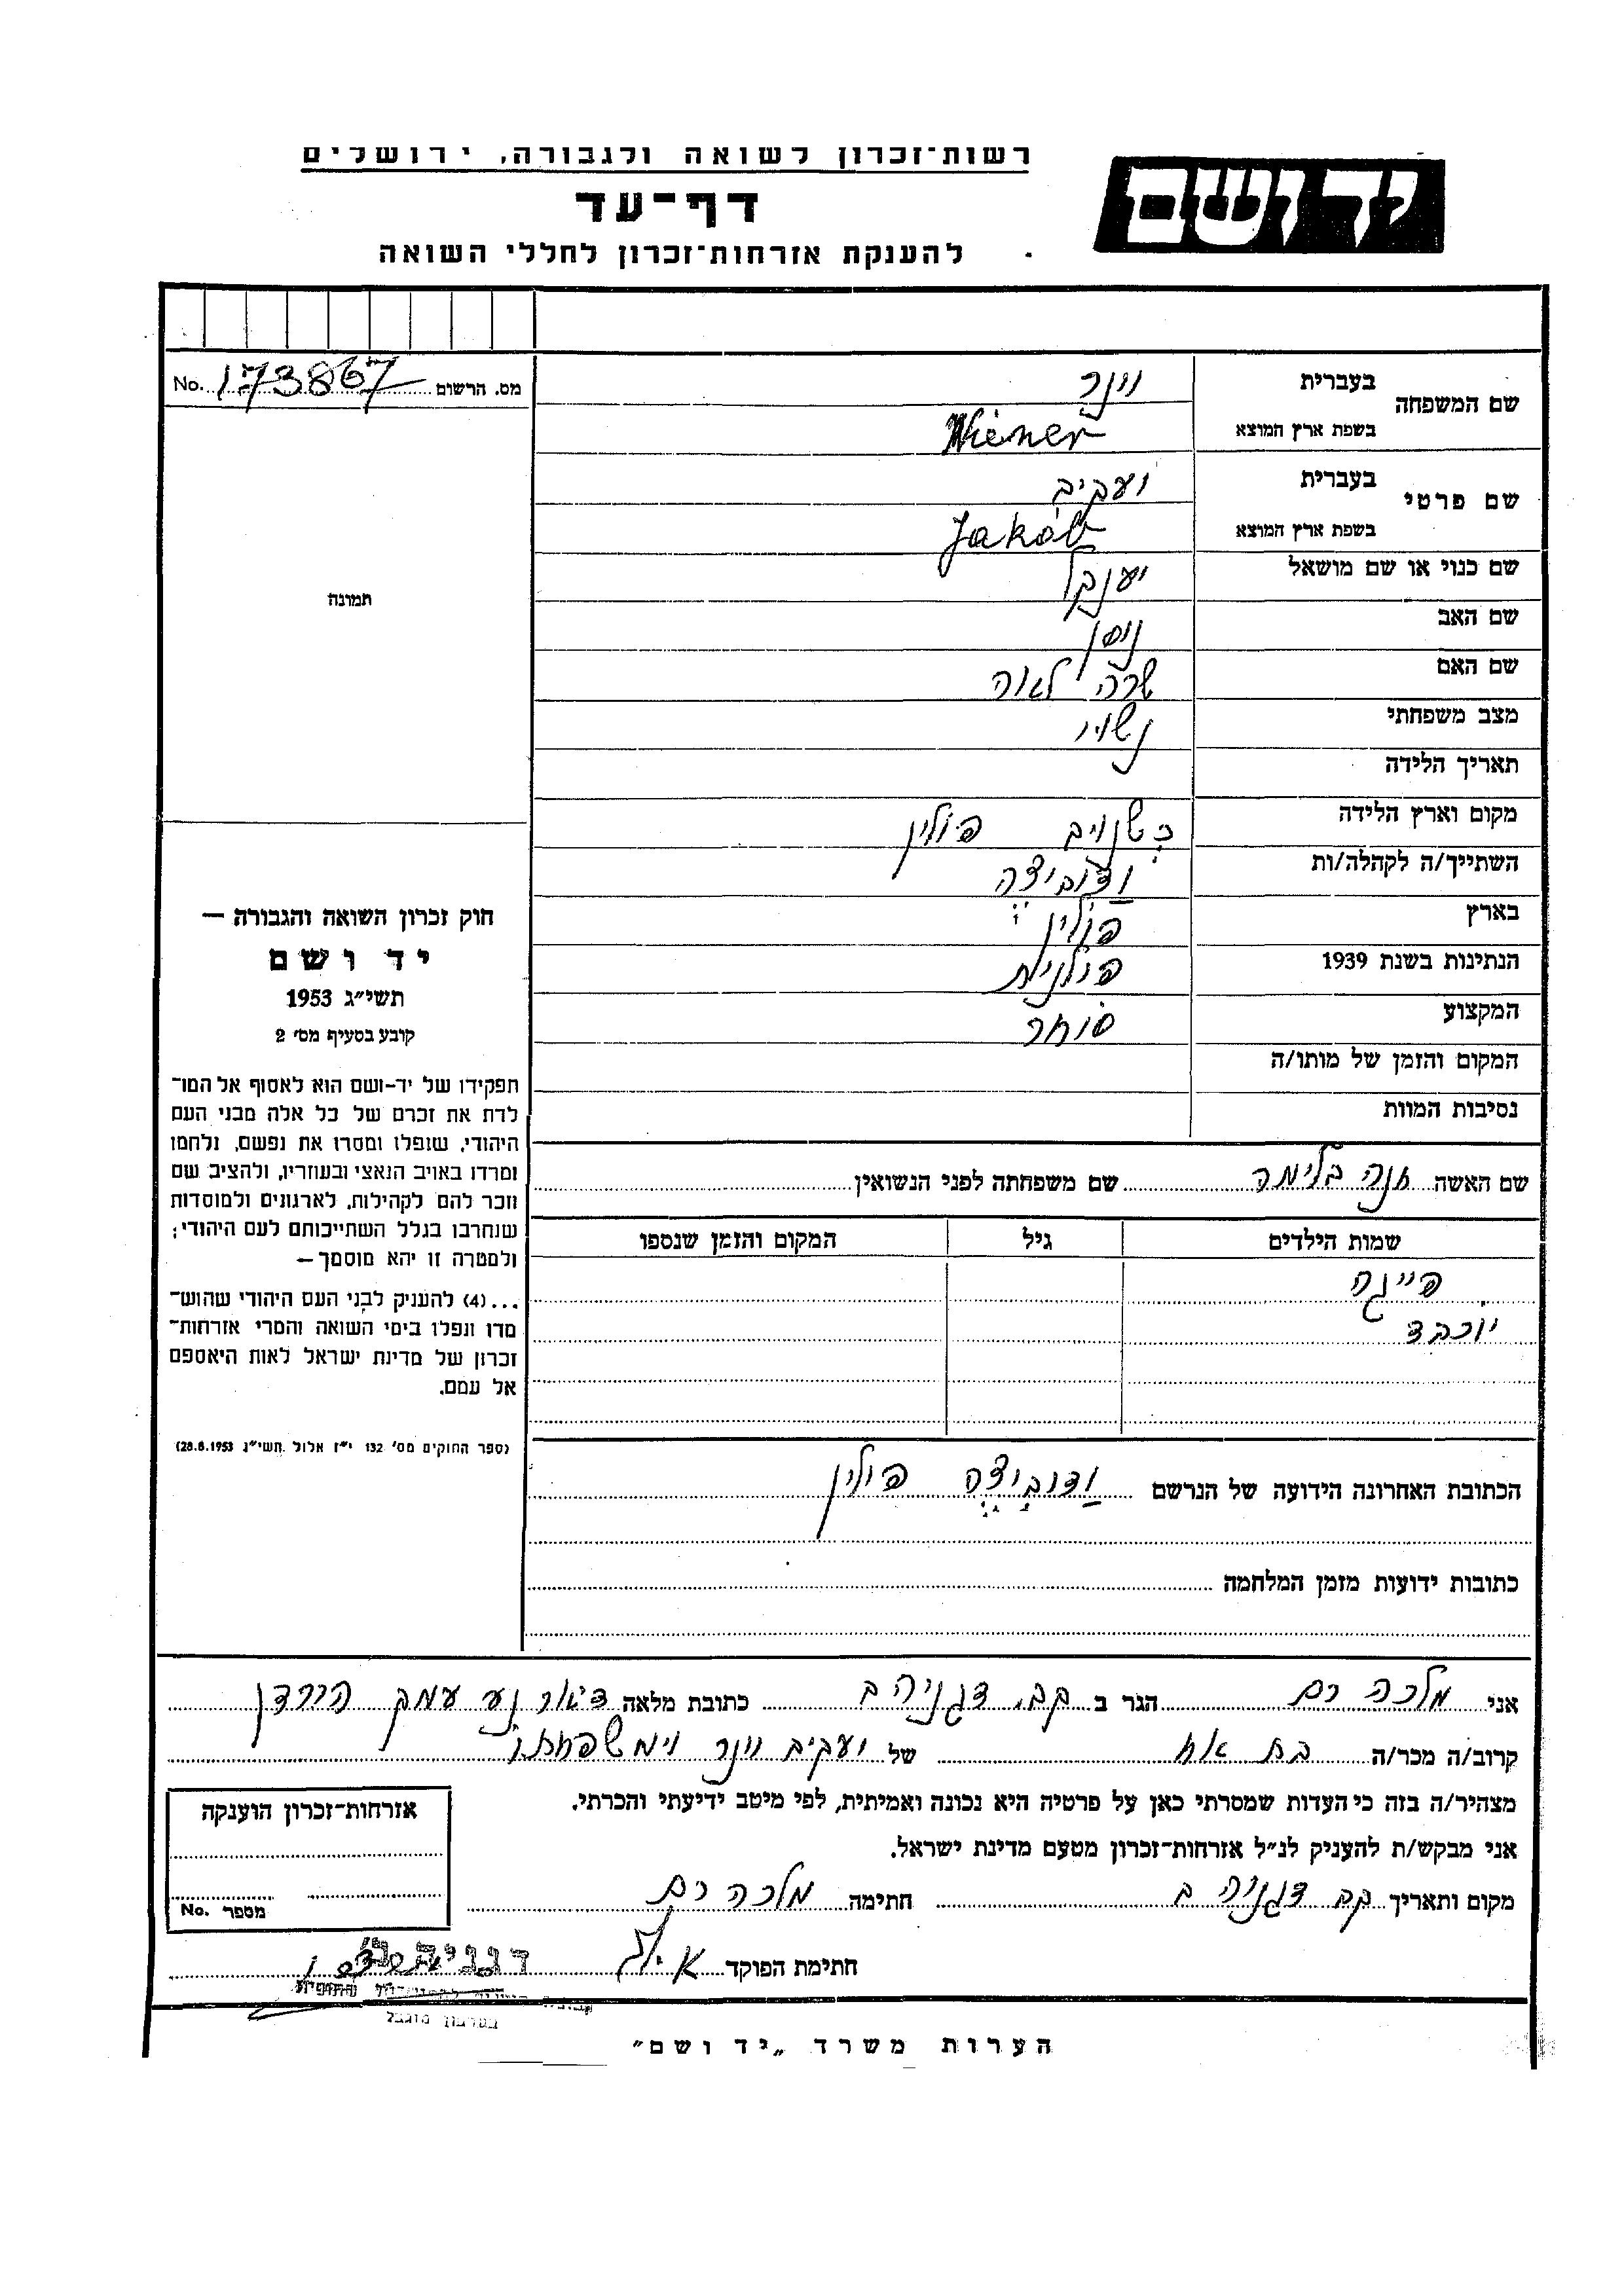 ידושם
רשות־זכרון לשואה ולגבורה, ירושלים
דף־עד
להענקת אזרחות־זכרון לחללי השואה
שם המשפחה
בעברית
וינר
בשפת ארץ המוצא
Wiener
שם פרטי
בעברית
יעקיב
בשפת ארץ המוצא
Jakób
שם כנוי או שם מושאל
יענקל
שם האב
ניסן
שם האם
שרה לאה
מצב משפחתי
נשוי
תאריך הלידה
מקום וארץ הלידה
פולין
השתייך/ה לקהלה/ות
ודוביצה
בארץ
פולין
הנתינות בשנת 1939
פולנית
המקצוע
סוחר
המקום והזמן של מותו/ה
נסיבות המוות
שם האשה חנה בלימה שם משפחתה לפני הנשואין
שמות הילדים גיל המקום והזמן שנספו
פייגה
יוכבד
הכתובת האחרונה הידועה של הנרשם ודוביצה פולין
כתובות ידועות מזמן המלחמה
מס. הרשום 173867 No.
תמונה
חוק זכרון השואה והגבורה —
יד ושם
תשי״ג 1953
קובע בסעיף מס׳ 2
תפקידו של יד-ושם הוא לאסוף אל המו־
לדת את זכרם של כל אלה מבני העם
היהודי, שנפלו ומסרו את נפשם, נלחמו
ומרדו באויב הנאצי ובעוזריו, ולהציב שם
וזכר להם לקהילות, לארגונים ולמוסדות
שנחרבו בגלל השתייכותם לעם היהודי;
ולמטרה זו יהא מוסמך —
...(4) להעניק לבני העם היהודי שהוש־
מדו ונפלו בימי השואה והמרי אזרחות־
זכרון של מדינת ישראל לאות היאספם
אל עמם.
(ספר החוקים מס׳ 132 י״ז אלול תשי״ג 28.8.1953)
אני מלכה רם הגר ב קב. דגניה ב כתובת מלאה דאר נע עמק הירדן
קרוב/ה מכר/ה בת אח של יעקיב וינר וימשפחתו
מצהיר/ה בזה כי העדות שמסרתי כאן על פרטיה היא נכונה ואמיתית, לפי מיטב ידיעתי והכרתי.
אני מבקש/ת להעניק לנ״ל אזרחות־זכרון מטעם מדינת ישראל.
מקום ותאריך קב דגניה ב חתימה מלכה רם
חתימת הפוקד
אזרחות־זכרון הוענקה
מספר No.
הערות משרד „יד ושם״